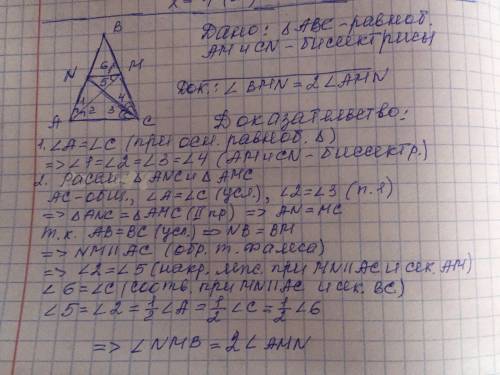 B
Дано: △ABC-равноб.
AM и CN - биссектрисы
N 6 M
5
Док.: ∠BMN = 2∠AMN
1 4
A 2 3 C
Доказательство:
1. ∠A=∠C (при осн. равноб. △)
=> ∠1=∠2=∠3=∠4 (AM и CN - биссектр.)
2. Рассм. △ANC и △AMC
AC-общ., ∠A=∠C (усл.), ∠2=∠3 (п.1)
=> △ANC = △AMC (II пр) => AN=MC
т.к. AB=BC (усл) => NB=BM
=> NM∥AC (обр. т. Фалеса)
=> ∠2=∠5 (накр. леж. при MN∥AC и сек. AM)
∠6=∠C (соотв. при MN∥AC и сек. BC)
∠5=∠2=1/2∠A=1/2∠C=1/2∠6
=> ∠NMB = 2∠AMN